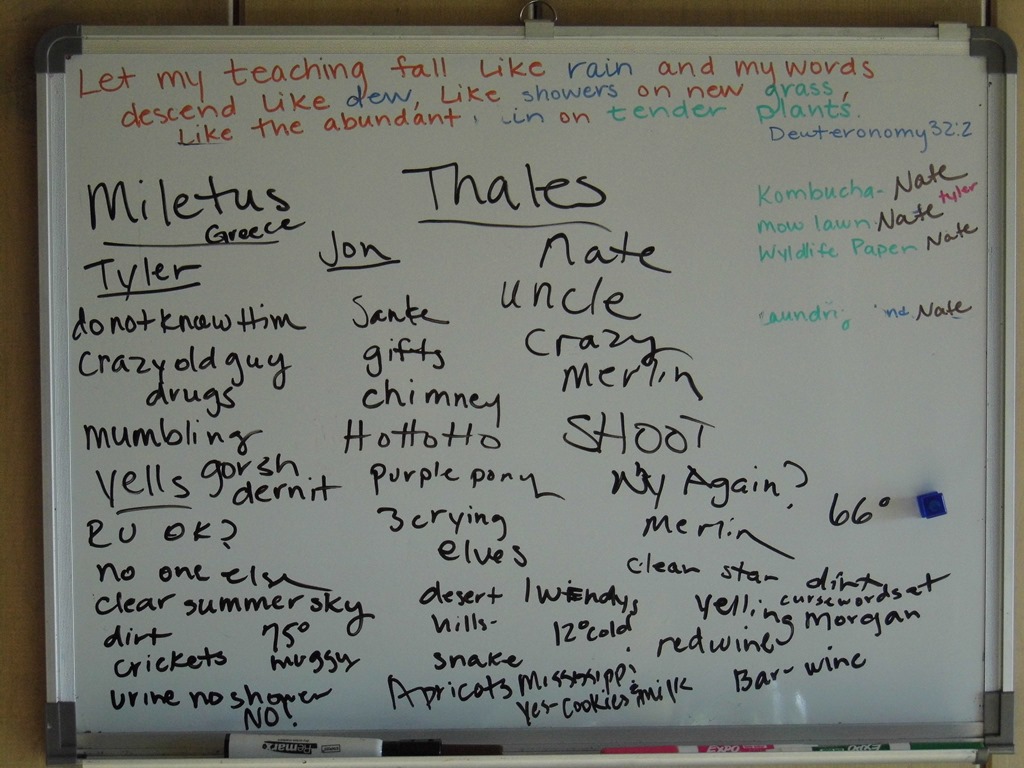 Let my teaching fall like rain and my words
descend like dew, like showers on new grass,
like the abundant in on tender plants.
Deuteronomy 32:2
Kombucha- Nate
mow lawn Nate tyler
Wyldlife Paper Nate
Nate
Miletus
Greece
Thales
Tyler
do not know Him
crazy old guy
drugs
mumbling
yells gorsh
dernit
R U OK?
no one else
clear summer sky
dirt 75°
crickets muggy
urine no shower
NO!
Jon
Santa
gifts
chimney
HoHoHo
purple pony
3 crying
elves
desert 1 wendys
hills-
12° cold
snake
Apricots Mississippi
yes-cookies & milk
Nate
uncle
crazy
merlin
SHOOT
Why Again?
merlin
66°
clean star dirt
yelling cursewords at
Morgan
red wine
Bar-wine
Remarx
EXPO